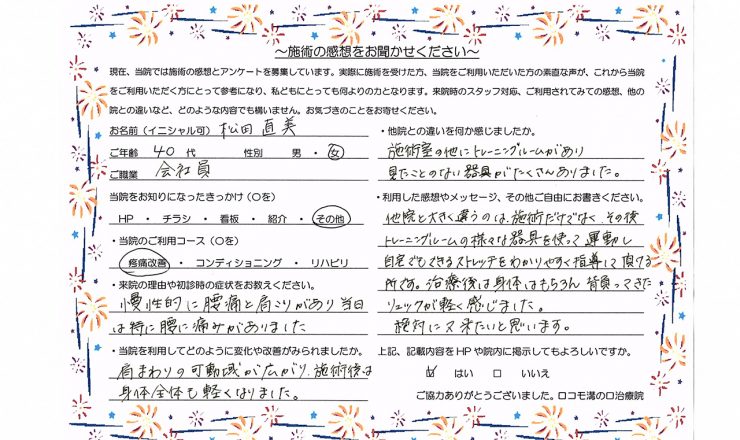 ～施術の感想をお聞かせください～
現在、当院では施術の感想とアンケートを募集しています。実際に施術を受けた方、当院をご利用いただいた方の素直な声が、これから当院
をご利用いただく方にとって参考になり、私どもにとっても何よりの力となります。来院時のスタッフ対応、ご利用されてみての感想、他の
院との違いなど、どのような内容でも構いません。お気づきのことをお寄せください。
お名前(イニシャル可) 松田 直美
ご年齢 40 代 性別 男 ・ 女
ご職業 会社員
当院をお知りになったきっかけ(〇を)
HP ・ チラシ ・ 看板 ・ 紹介 ・ その他
・当院のご利用コース(〇を)
疼痛改善 ・ コンディショニング ・ リハビリ
・来院の理由や初診時の症状をお教えください。
慢性的に腰痛と肩こりがあり当日
は特に腰に痛みがありました
・当院を利用してどのように変化や改善がみられましたか。
肩まわりの可動域が広がり、施術後は
身体全体も軽くなりました。
・他院との違いを何か感じましたか。
施術室の他にトレーニングルームがあり
見たことのない器具がたくさんありました。
・利用した感想やメッセージ、その他ご自由にお書きください。
他院と大きく違うのは、施術だけでなく、その後
トレーニングルームの様々な器具を使って運動し
自宅でもできるストレッチをわかりやすく指導して頂ける
所です。治療後は身体はもちろん背負ってきた
リュックが軽く感じました。
絶対に又来たいと思います。
上記、記載内容をHPや院内に掲示してもよろしいですか。
☑ はい □ いいえ
ご協力ありがとうございました。ロコモ溝の口治療院